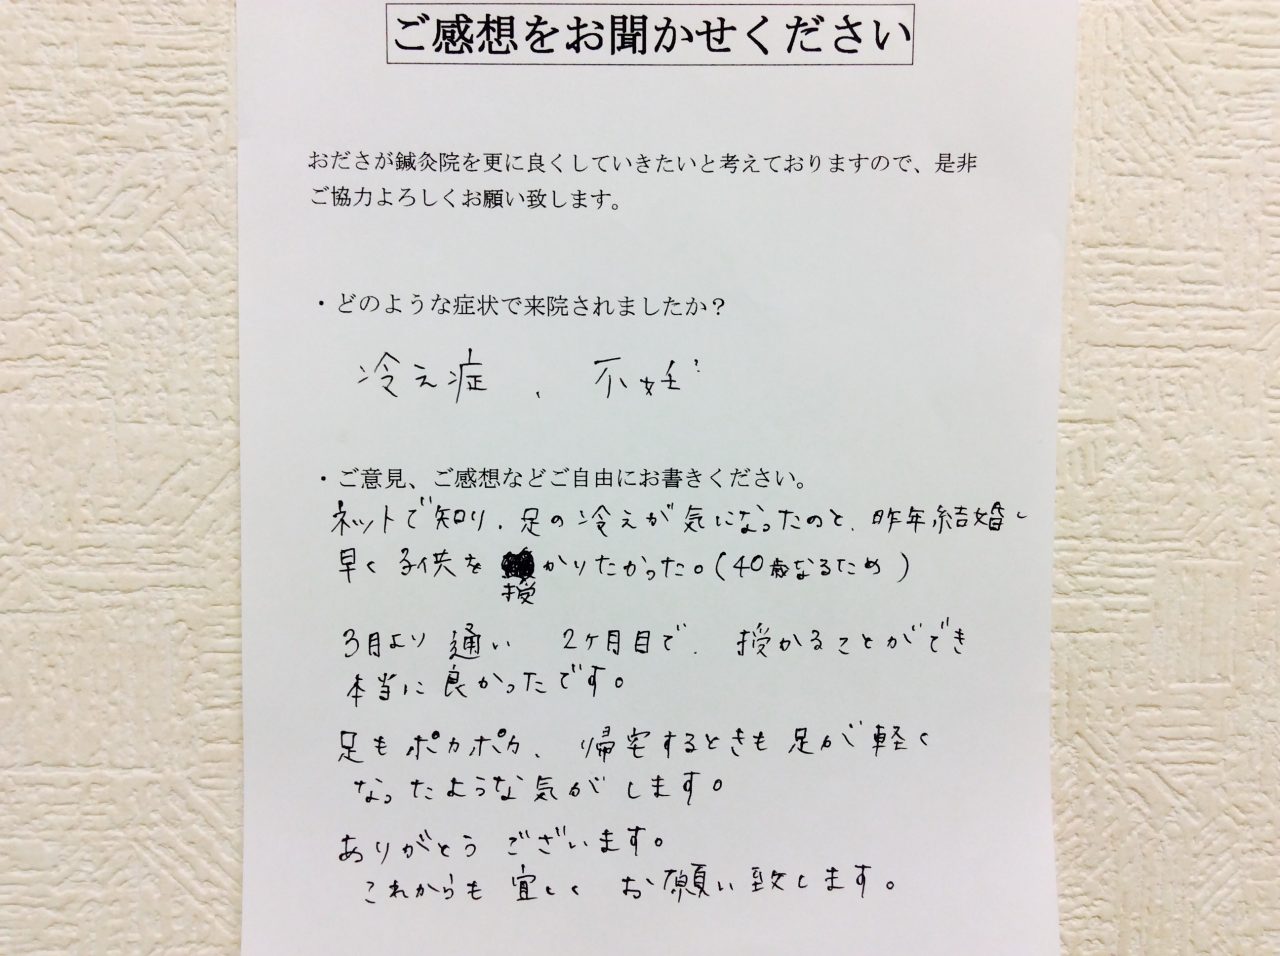 ご感想をお聞かせください
おださが鍼灸院を更に良くしていきたいと考えておりますので、是非
ご協力よろしくお願い致します。
・どのような症状で来院されましたか？
冷え症、不妊?
・ご意見、ご感想などご自由にお書きください。
ネットで知り、足の冷えが気になったのと、昨年結婚し
早く子供を授かりたかった。(40歳なるため)
3月より通い 2ケ月目で、授かることができ
本当に良かったです。
足もポカポカ、帰宅するときも足が軽く
なったような気がします。
ありがとうございます。
これからも宜しくお願い致します。